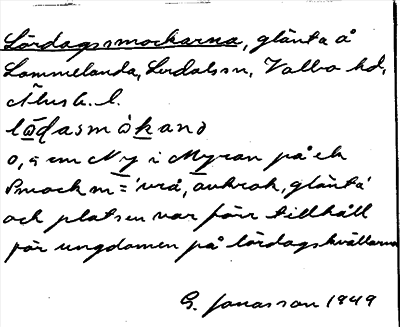 Lördagssmockarna, glänta å
Lommelanda, Lerdalssn, Valbo hd,
Älvsb. l.
lödasmòkanə
o, a m N y i Myran på ek
Smock m = 'vrå, avkrok, glänta'
och platsen var förr tillhåll
för ungdomen på lördagskvällarna
G. Jonasson 1949